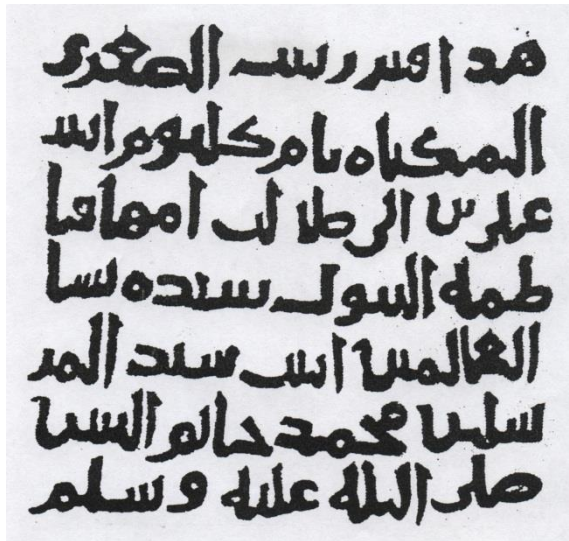 هذا قبر زينب الصغرى
المكناه بام كلثوم ابنت
على بن ابى طالب امها فا
طمه البتول سيده نسا
العالمين ابنت سيد المر
سلين محمد خاتم النبيين
صلى الله عليه وسلم